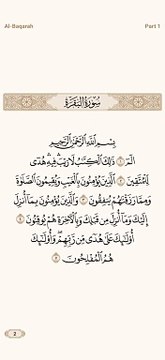 Al-Baqarah
Part 1
سُورَةُ البَقَرَةِ
بِسْمِ اللَّهِ الرَّحْمَٰنِ الرَّحِيمِ
الٓمٓ ۝١ ذَٰلِكَ الْكِتَابُ لَا رَيْبَ ۛ فِيهِ ۛ هُدًى
لِّلْمُتَّقِينَ ۝٢ الَّذِينَ يُؤْمِنُونَ بِالْغَيْبِ وَيُقِيمُونَ الصَّلَاةَ
وَمِمَّا رَزَقْنَاهُمْ يُنفِقُونَ ۝٣ وَالَّذِينَ يُؤْمِنُونَ بِمَا أُنزِلَ
إِلَيْكَ وَمَا أُنزِلَ مِن قَبْلِكَ وَبِالْآخِرَةِ هُمْ يُوقِنُونَ ۝٤
أُولَٰئِكَ عَلَىٰ هُدًى مِّن رَّبِّهِمْ ۖ وَأُولَٰئِكَ
هُمُ الْمُفْلِحُونَ ۝٥
2